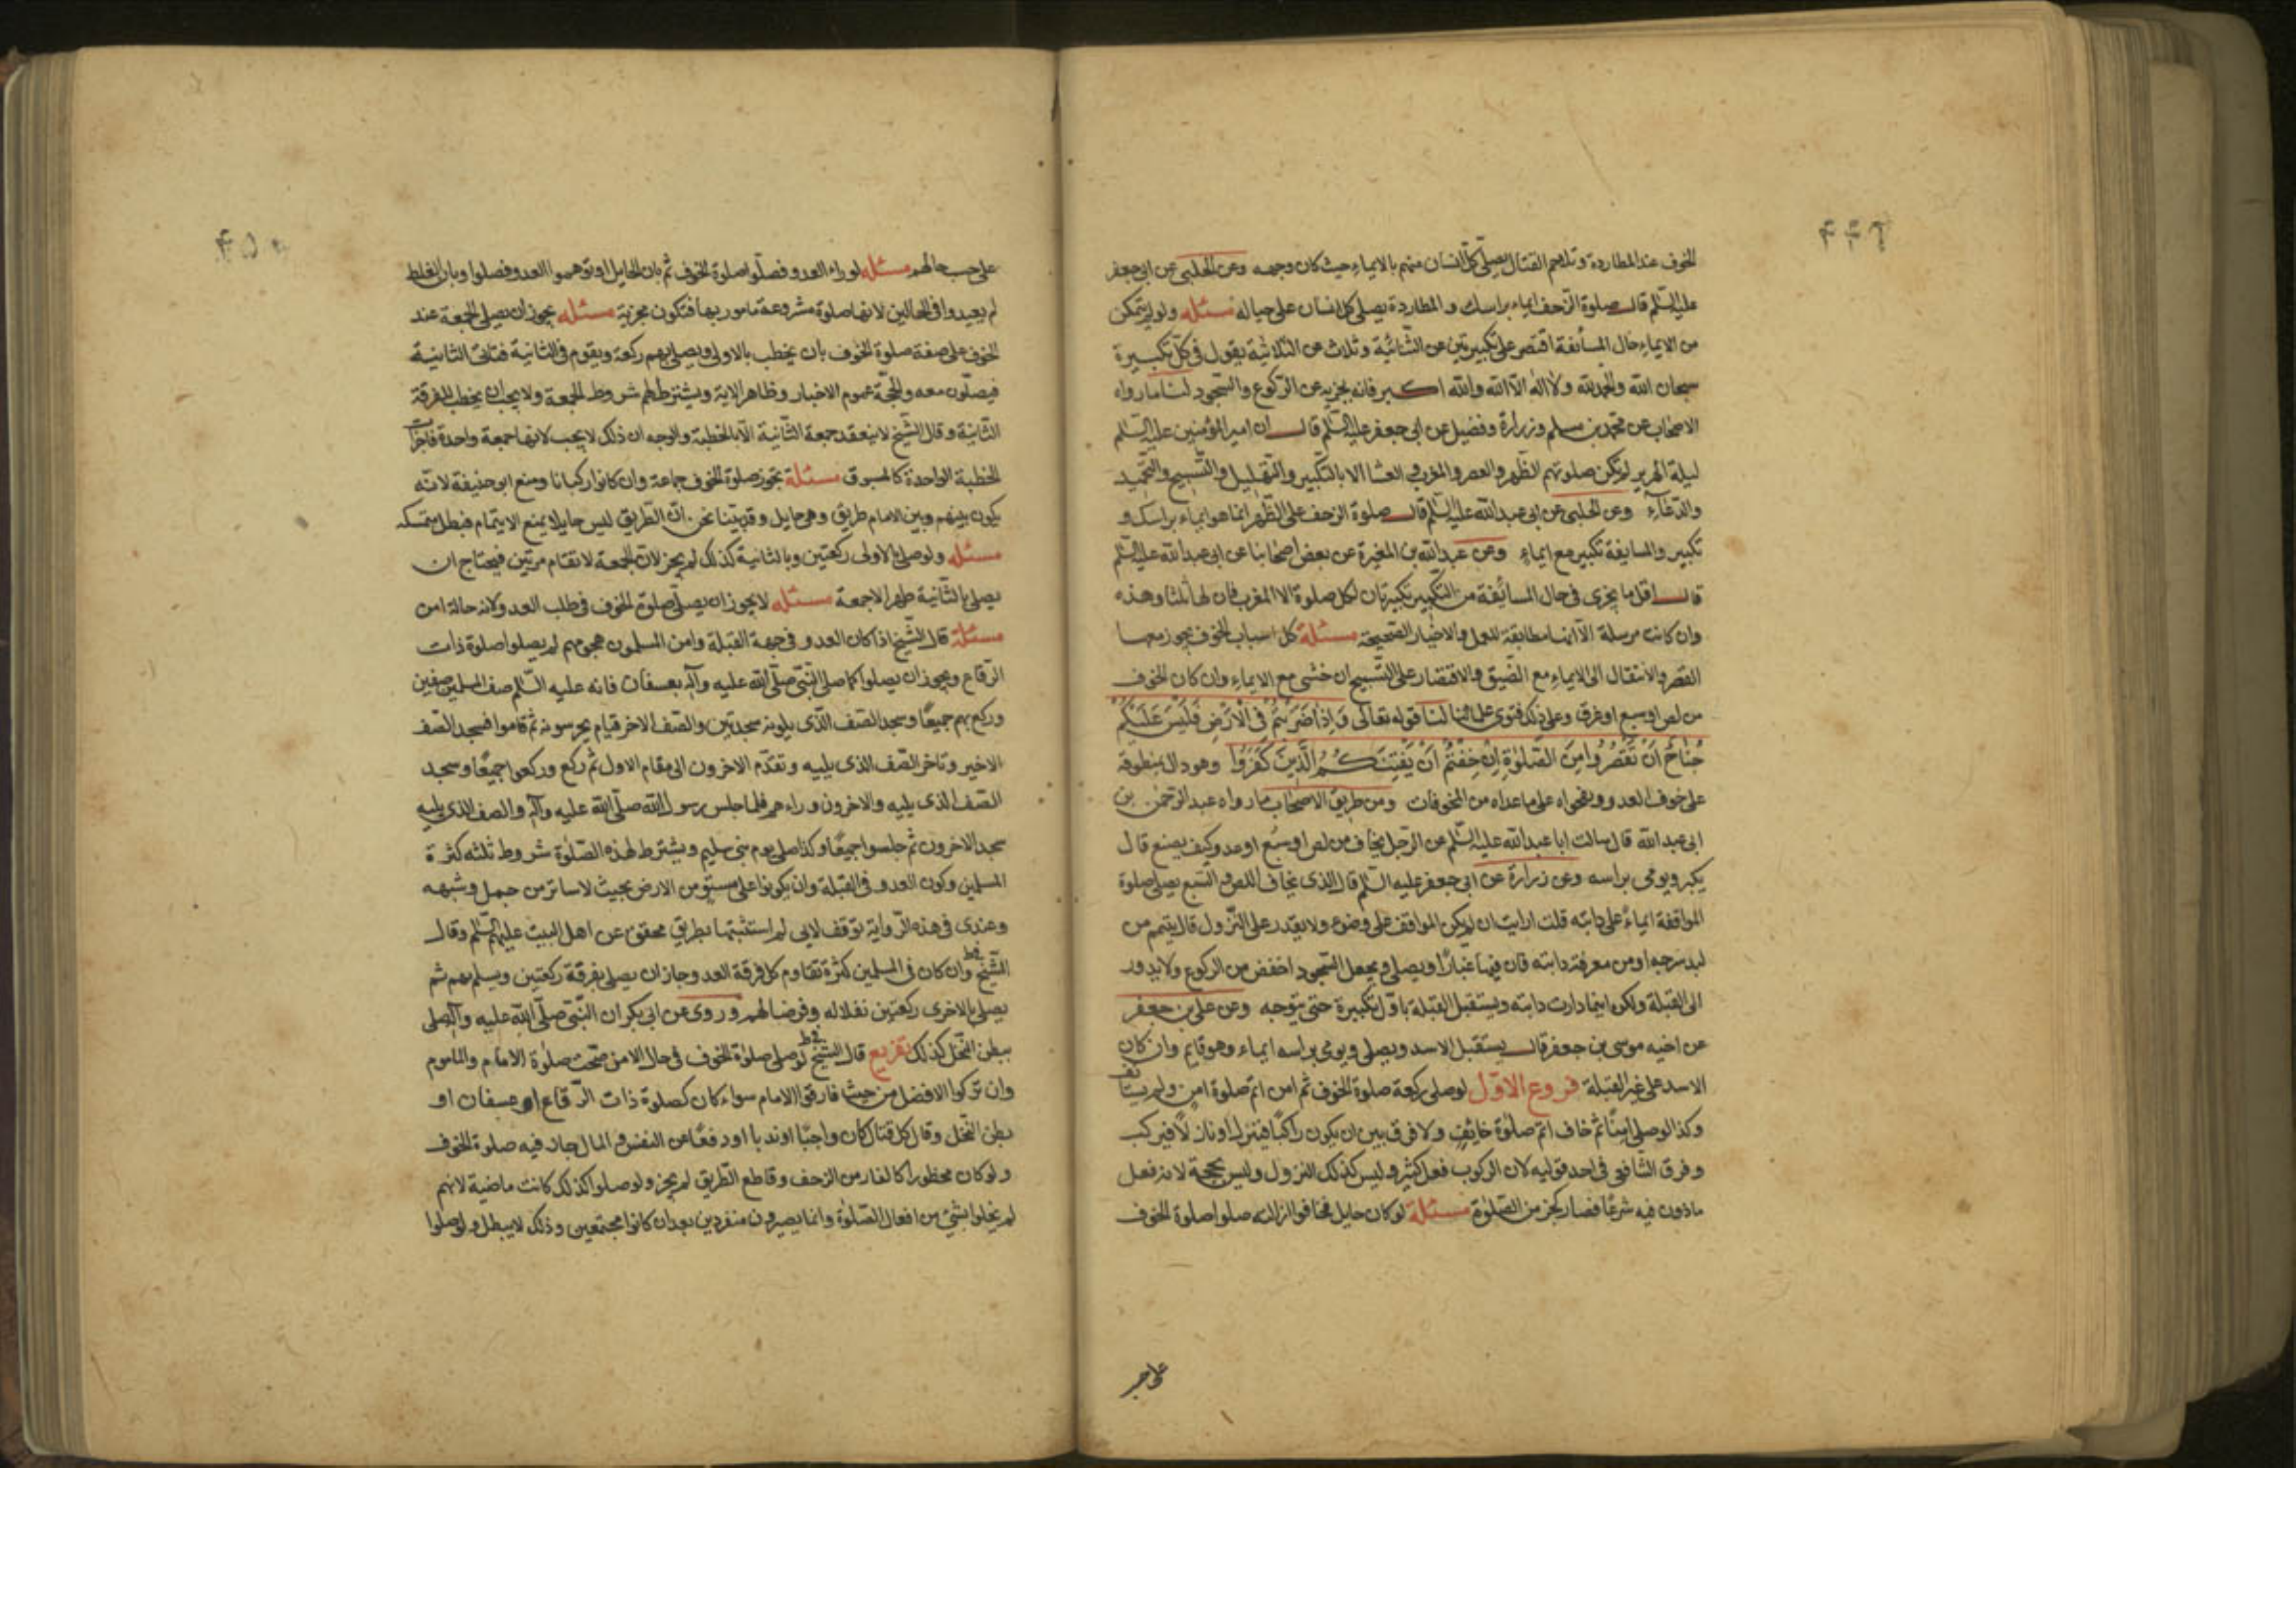 الخوف عند المطاردة وتلاحم القتال يصلى كل انسان منهم بالايماء حيث كان وجهه وعن الحلبى عن ابى جعفر
عليه السلم قال صلوة الزحف ايماء براسك والمطاردة يصلى كل انسان على حياله مسئله ولو لم يتمكن
من الايماء حال المسائفة اقتصر على تكبيرتين عن الثنائية وثلاث عن الثلاثية يقول فى كل تكبيرة
سبحان الله والحمد لله ولا اله الا الله والله اكبر فانه يجزيه عن الركوع والسجود لنا ما رواه
الاصحاب عن محمد بن مسلم وزرارة وفضيل عن ابى جعفر عليه السلم قال ان امير المؤمنين عليه السلم
ليلة الهرير لم تكن صلوتهم الظهر والعصر والمغرب والعشا الا بالتكبير والتهليل والتسبيح والتحميد
والدعاء وعن الحلبى عن ابى عبد الله عليه السلم قال صلوة الزحف على الظهر انما هو ايماء براسك و
تكبير والمسايفة تكبير مع ايماء وعن عبد الله بن المغيرة عن بعض اصحابنا عن ابى عبد الله عليه السلم
قال اقل ما يجزى فى حال المسائفة من التكبير تكبيرتان لكل صلوة الا المغرب فان لها ثلثا وهذه
وان كانت مرسلة الا انها مطابقة للعمل والاخبار الصحيحة مسئلة كل اسباب الخوف يجوز معها
القصر والانتقال الى الايماء مع الضيق والاقتصار على التسبيح ان خشى مع الايماء وان كان الخوف
من لص او سبع او غرق وعلى ذلك فتوى علمائنا لنا قوله تعالى وَاِذَا ضَرَبْتُمْ فِى الْاَرْضِ فَلَيْسَ عَلَيْكُمْ
جُنَاحٌ اَنْ تَقْصُرُوا مِنَ الصَّلٰوةِ اِنْ خِفْتُمْ اَنْ يَفْتِنَكُمُ الَّذِينَ كَفَرُوا وهو دال بمنطوقه
على خوف العدو وبفحواه على ما عداه من المخوفات ومن طريق الاصحاب ما رواه عبد الرحمن بن
ابى عبد الله قال سالت ابا عبد الله عليه السلم عن الرجل يخاف من لص او سبع او عدو كيف يصنع قال
يكبر ويومى براسه وعن زرارة عن ابى جعفر عليه السلم قال الذى يخاف اللص والسبع يصلى صلوة
المواقفة ايماء على دابته قلت ارايت ان لم يكن المواقف على وضوء ولا يقدر على النزول قال يتيمم من
لبد سرجه او من معرفة دابته فان فيها غبارا ويصلى ويجعل السجود اخفض من الركوع ولا يدور
الى القبلة ولكن اينما دارت دابته ويستقبل القبلة باول تكبيرة حتى يتوجه وعن على بن جعفر
عن اخيه موسى بن جعفر قال يستقبل الاسد ويصلى ويومى براسه ايماء وهو قايم وان كان
الاسد على غير القبلة فروع الاول لو صلى ركعة صلوة الخوف ثم امن اتم صلوة امن ولم يستانف
وكذا لو صلى امنا ثم خاف اتم صلوة خايف ولا فرق بين ان يكون راكبا فينزل او نازلا فيركب
وفرق الشافعى فى احد قوليه لان الركوب فعل كثير وليس كذلك النزول وليس بحجة لانه فعل
ماذون فيه شرعا فصار كجزء من الصلوة مسئلة لو كان حايل فخافوا ازالته صلوا صلوة الخوف
على حسب
على حسب حالهم مسئله لو راء العدو فصلوا صلوة الخوف ثم بان الحايل او توهموا العدو فصلوا وبان الغلط
لم يعيدوا فى الحالين لانها صلوة مشروعة مامور بها فتكون مجزية مسئله يجوز ان يصلى الجمعة عند
الخوف على صفة صلوة الخوف بان يخطب بالاولى ويصلى بهم ركعة ويقوم فى الثانية فتاتى الثانية
فيصلون معه والحجة عموم الاخبار وظاهر الاية ويشترط لهم شروط الجمعة ولا يجب ان يخطب للفرقة
الثانية وقال الشيخ لا ينعقد جمعة الثانية الا بالخطبة والوجه ان ذلك لا يجب لانها جمعة واحدة فاجزات
الخطبة الواحدة كالمسبوق مسئلة يجوز صلوة الخوف جماعة وان كانوا ركبانا ومنع ابو حنيفة لانه
يكون بينهم وبين الامام طريق وهى حايل وقد بينا نحن ان الطريق ليس حايلا يمنع الايتمام فبطل متمسكه
مسئله ولو صلى بالاولى ركعتين وبالثانية كذلك لم يجز لان الجمعة لا تقام مرتين فيحتاج ان
يصلى بالثانية ظهرا لا جمعة مسئله لا يجوز ان يصلى صلوة الخوف فى طلب العدو لانه حالة امن
مسئلة قال الشيخ اذا كان العدو فى جهة القبلة وامن المسلمون هجومهم لم يصلوا صلوة ذات
الرقاع ويجوز ان يصلوا كما صلى النبى صلى الله عليه وآله بعسفان فانه عليه السلم صف المسلمين صفين
وركع بهم جميعا وسجد الصف الذى يلونه سجدتين والصف الاخر قيام يحرسونه ثم قاموا فسجد الصف
الاخير وتاخر الصف الذى يليه وتقدم الاخرون الى مقام الاول ثم ركع وركعوا جميعا وسجد
الصف الذى يليه والاخرون وراءهم فلما جلس رسول الله صلى الله عليه وآله والصف الذى يليه
سجد الاخرون ثم جلسوا جميعا وكذا صلى يوم بنى سليم ويشترط لهذه الصلوة شروط ثلثه كثرة
المسلمين وكون العدو فى القبلة وان يكونوا على مستو من الارض بحيث لا ساتر من جبل وشبهه
وعندى فى هذه الرواية توقف لانى لم استثبتها بطريق محقق عن اهل البيت عليهم السلم وقال
الشيخ وان كان فى المسلمين كثرة تقاوم كل فرقة العدو جاز ان يصلى بفرقة ركعتين ويسلم بهم ثم
يصلى بالاخرى ركعتين نفلا له وفرضا لهم وروى عن ابى بكر ان النبى صلى الله عليه وآله صلى
ببطن النخل كذلك تفريع قال الشيخ لو صلى صلوة الخوف فى حال الامن صحت صلوة الامام والماموم
وان تركوا الافضل من حيث فارقوا الامام سواء كان كصلوة ذات الرقاع او عسفان او
بطن النخل وقال كل قتال كان واجبا او ندبا او دفعا عن النفس والمال جاز فيه صلوة الخوف
ولو كان محظورا كالفار من الزحف وقاطع الطريق لم يجز ولو صلوا كذلك كانت ماضية لانهم
لم يخلوا بشئ من افعال الصلوة وانما يصيرون منفردين بعد ان كانوا مجتمعين وذلك لا يبطل ولو صلوا